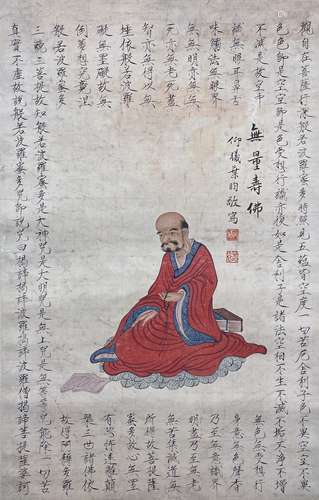 觀自在菩薩行深般若波羅蜜多時照見五蘊皆空度一切苦厄舍利子色不異空空不異
色色即是空空即是色受想行識亦復如是舍利子是諸法空相不生不滅不垢不淨不增
不減是故空中
無色無受想行
識無眼耳鼻舌
身意無色聲香
味觸法無眼界
乃至無意識界
無無明亦無無
明盡乃至無老
死亦無老死盡
無苦集滅道無
智亦無得以無
所得故菩提薩
埵依般若波羅
礙無罣礙故無
有恐怖遠離顛
倒夢想究竟涅
槃三世諸佛依
般若波羅蜜多
故得阿耨多羅
三藐三菩提故知般若波羅蜜多是大神咒是大明咒是無上咒是無等等咒能除一切苦
真實不虛故說般若波羅蜜多咒即說咒曰揭諦揭諦波羅揭諦波羅僧揭諦菩提薩婆訶
無量壽佛
仰儀葉昀敬寫